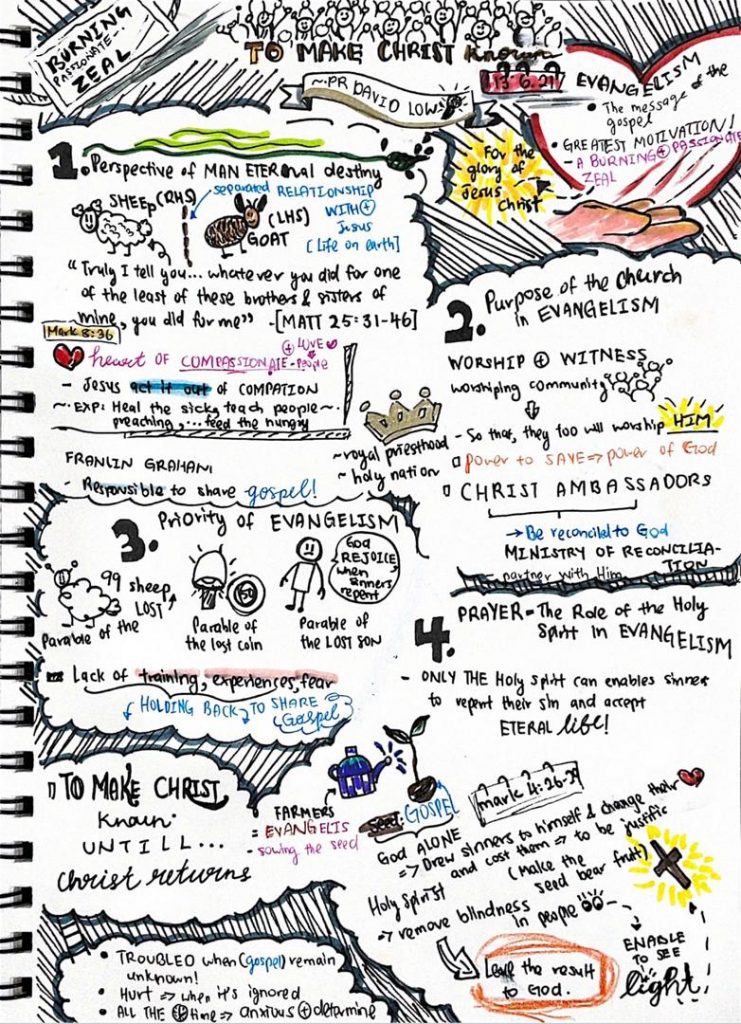 BURNING
PASSIONATE..
ZEAL
TO MAKE CHRIST known
~PR DAVID LOW
13.6.21
EVANGELISM
• The message of the
gospel
• GREATEST MOTIVATION!
- A BURNING + PASSIONATE
ZEAL
For the
glory of
Jesus
Christ
1. Perspective of MAN ETERnal destiny
SHEEP (RHS)
separated RELATIONSHIP
WITH +
Jesus
[Life on earth]
(LHS)
GOAT
"Truly I tell you... whatever you did for one
of the least of these brothers & sisters of
mine, you did for me" -[MATT 25:31-46]
Mark 8:36
heart OF COMPASSIONATE - people
+ LOVE
- Jesus act it out of COMPATION
~ EXP: Heal the sick, teach people ~
preaching,... feed the hungry
FRANLIN GRAHAM
- Responsible to share gospel!
~royal priesthood
~ holy nation
2. Purpose of the Church
in EVANGELISM
WORSHIP + WITNESS
worshiping community
- So that, they too will worship HIM
power to SAVE => power of God
CHRIST AMBASSADORS
→ Be reconciled to God
MINISTRY OF RECONCILIA-
TION
- partner with Him
3. Priority of EVANGELISM
99 sheep
LOST
Parable of the
Parable of
the lost coin
God
REJOICE
when
sinners
repent
Parable of
the LOST SON
Lack of training, experiences, fear
HOLDING BACK TO SHARE
Gospel
4. PRAYER - The Role of the Holy
Spirit in EVANGELISM
- ONLY THE Holy spirit can enables sinners
to repent their sin and accept
ETERAL life!
TO MAKE CHRIST
Known
UNTILL...
Christ returns
FARMERS
= EVANGELIS
- sowing the seed
seed: GOSPEL
mark 4:26-29
God ALONE
=> Drew sinners to himself & change their
and cost them => to be justific
(make the
seed bear fruit)
Holy Spirist
-> remove blindness
in people
ENABLE
TO SEE
light
Leave the result
to God.
• TROUBLED when (gospel) remain
unknown!
• Hurt => when it's ignored
• ALL THE time => anxious + determine